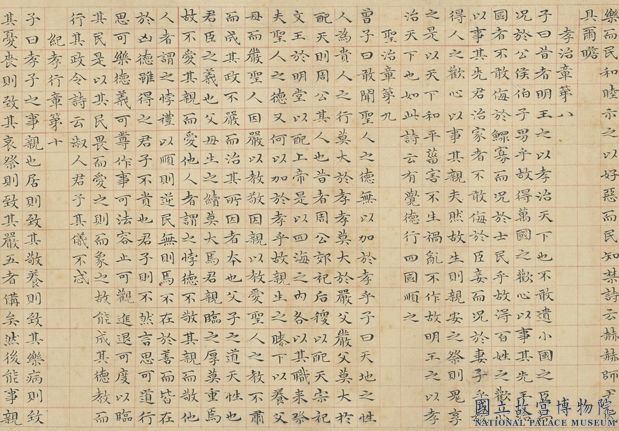 樂而民和睦示之以好惡而民知禁詩云赫赫師尹民
具爾瞻
孝治章第八
子曰昔者明王之以孝治天下也不敢遺小國之臣而
況於公侯伯子男乎故得萬國之歡心以事其先王治國
者不敢侮於鰥寡而況於士民乎故得百姓之歡心
以事其先君治家者不敢侮於臣妾而況於妻子乎故
得人之歡心以事其親夫然故生則親安之祭則鬼享
之是以天下和平菑害不生禍亂不作故明王之以孝
治天下也如此詩云有覺德行四國順之
聖治章第九
曾子曰敢問聖人之德無以加於孝乎子曰天地之性
人為貴人之行莫大於孝孝莫大於嚴父嚴父莫大於
配天則周公其人也昔者周公郊祀后稷以配天宗祀
文王於明堂以配上帝是以四海之內各以其職來祭
夫聖人之德又何以加於孝乎故親生之膝下以養父
母日嚴聖人因嚴以教敬因親以教愛聖人之教不肅
而成其政不嚴而治其所因者本也父子之道天性也
君臣之義也父母生之續莫大焉君親臨之厚莫重焉
故不愛其親而愛他人者謂之悖德不敬其親而敬他
人者謂之悖禮以順則逆民無則焉不在於善而皆在
於凶德雖得之君子不貴也君子則不然言思可道行
思可樂德義可尊作事可法容止可觀進退可度以臨
其民是以其民畏而愛之則而象之故能成其德教而
行其政令詩云淑人君子其儀不忒
紀孝行章第十
子曰孝子之事親也居則致其敬養則致其樂病則致
其憂喪則致其哀祭則致其嚴五者備矣然後能事親
國立故宮博物院
NATIONAL PALACE MUSEUM